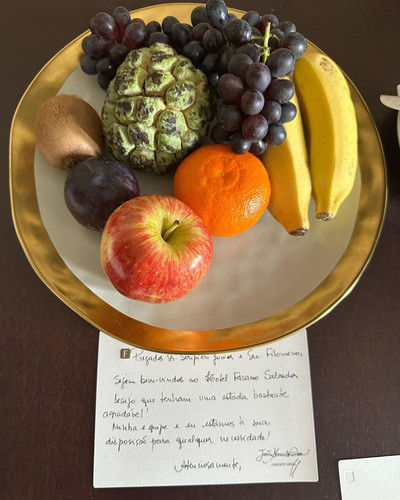 F Prezados Sr. Scipião Junior e Sra. Filomena,
Sejam bem-vindos ao Hotel Fasano Salvador
Desejo que tenham uma estada bastante
agradável!
Minha equipe e eu estamos à sua
disposição para qualquer necessidade!
Atenciosamente,
GERENTE GERAL